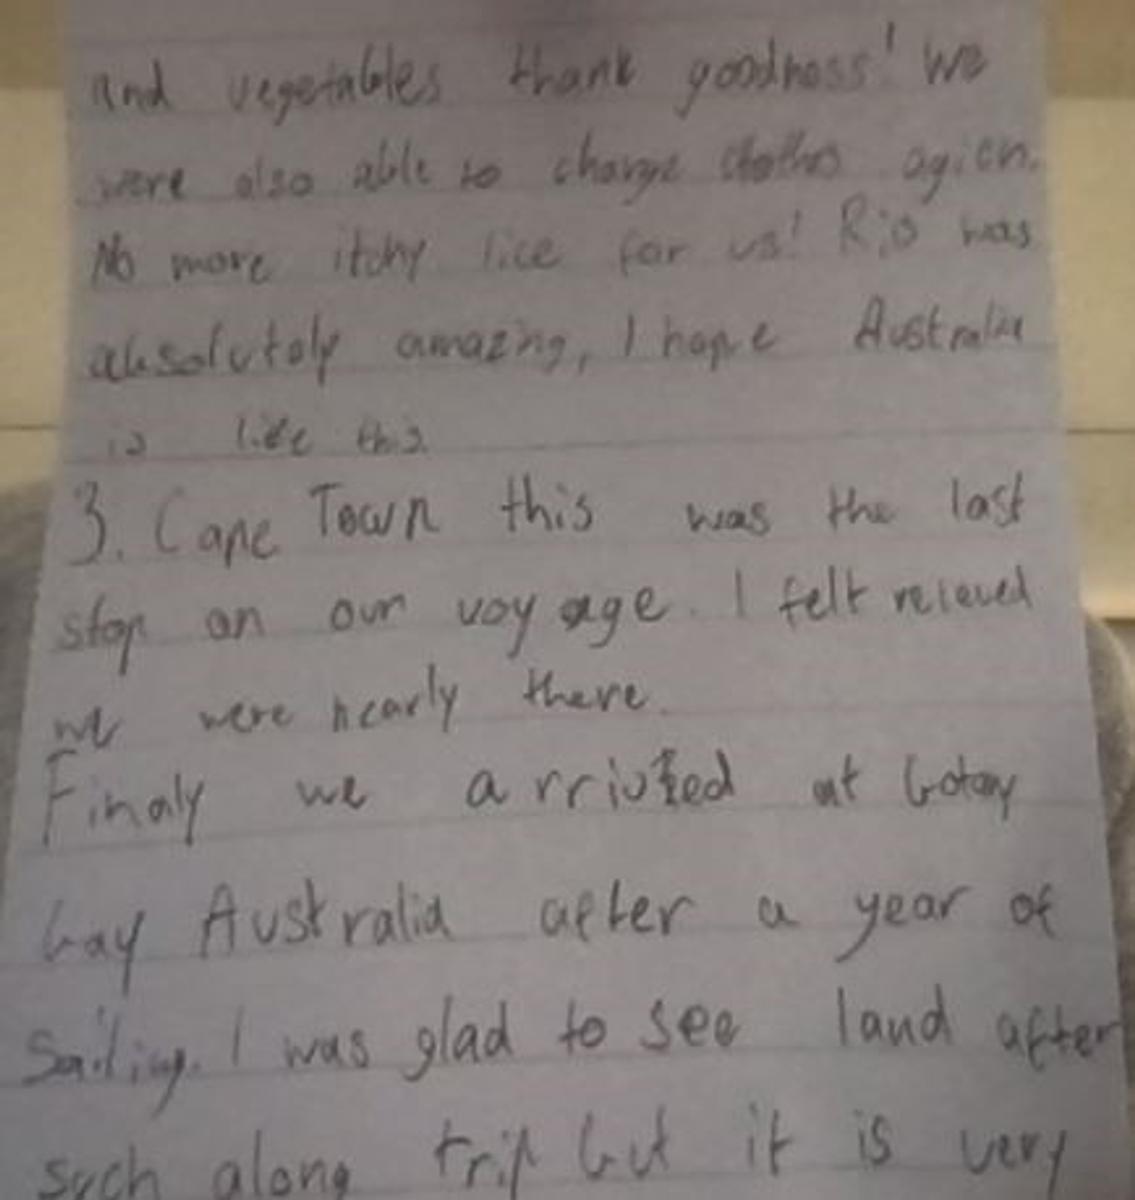 and vegetables thank goodness! We
were also able to change clothes agien.
No more itchy lice for us! Rio was
absolutoly amazing, I hope Australia
is like this.
3. Cape Town this was the last
stop on our voyage. I felt releved
we were nearly there.
Finaly we arrived at botany
bay Australia after a year of
Sailing. I was glad to see land after
such along trip but it is very